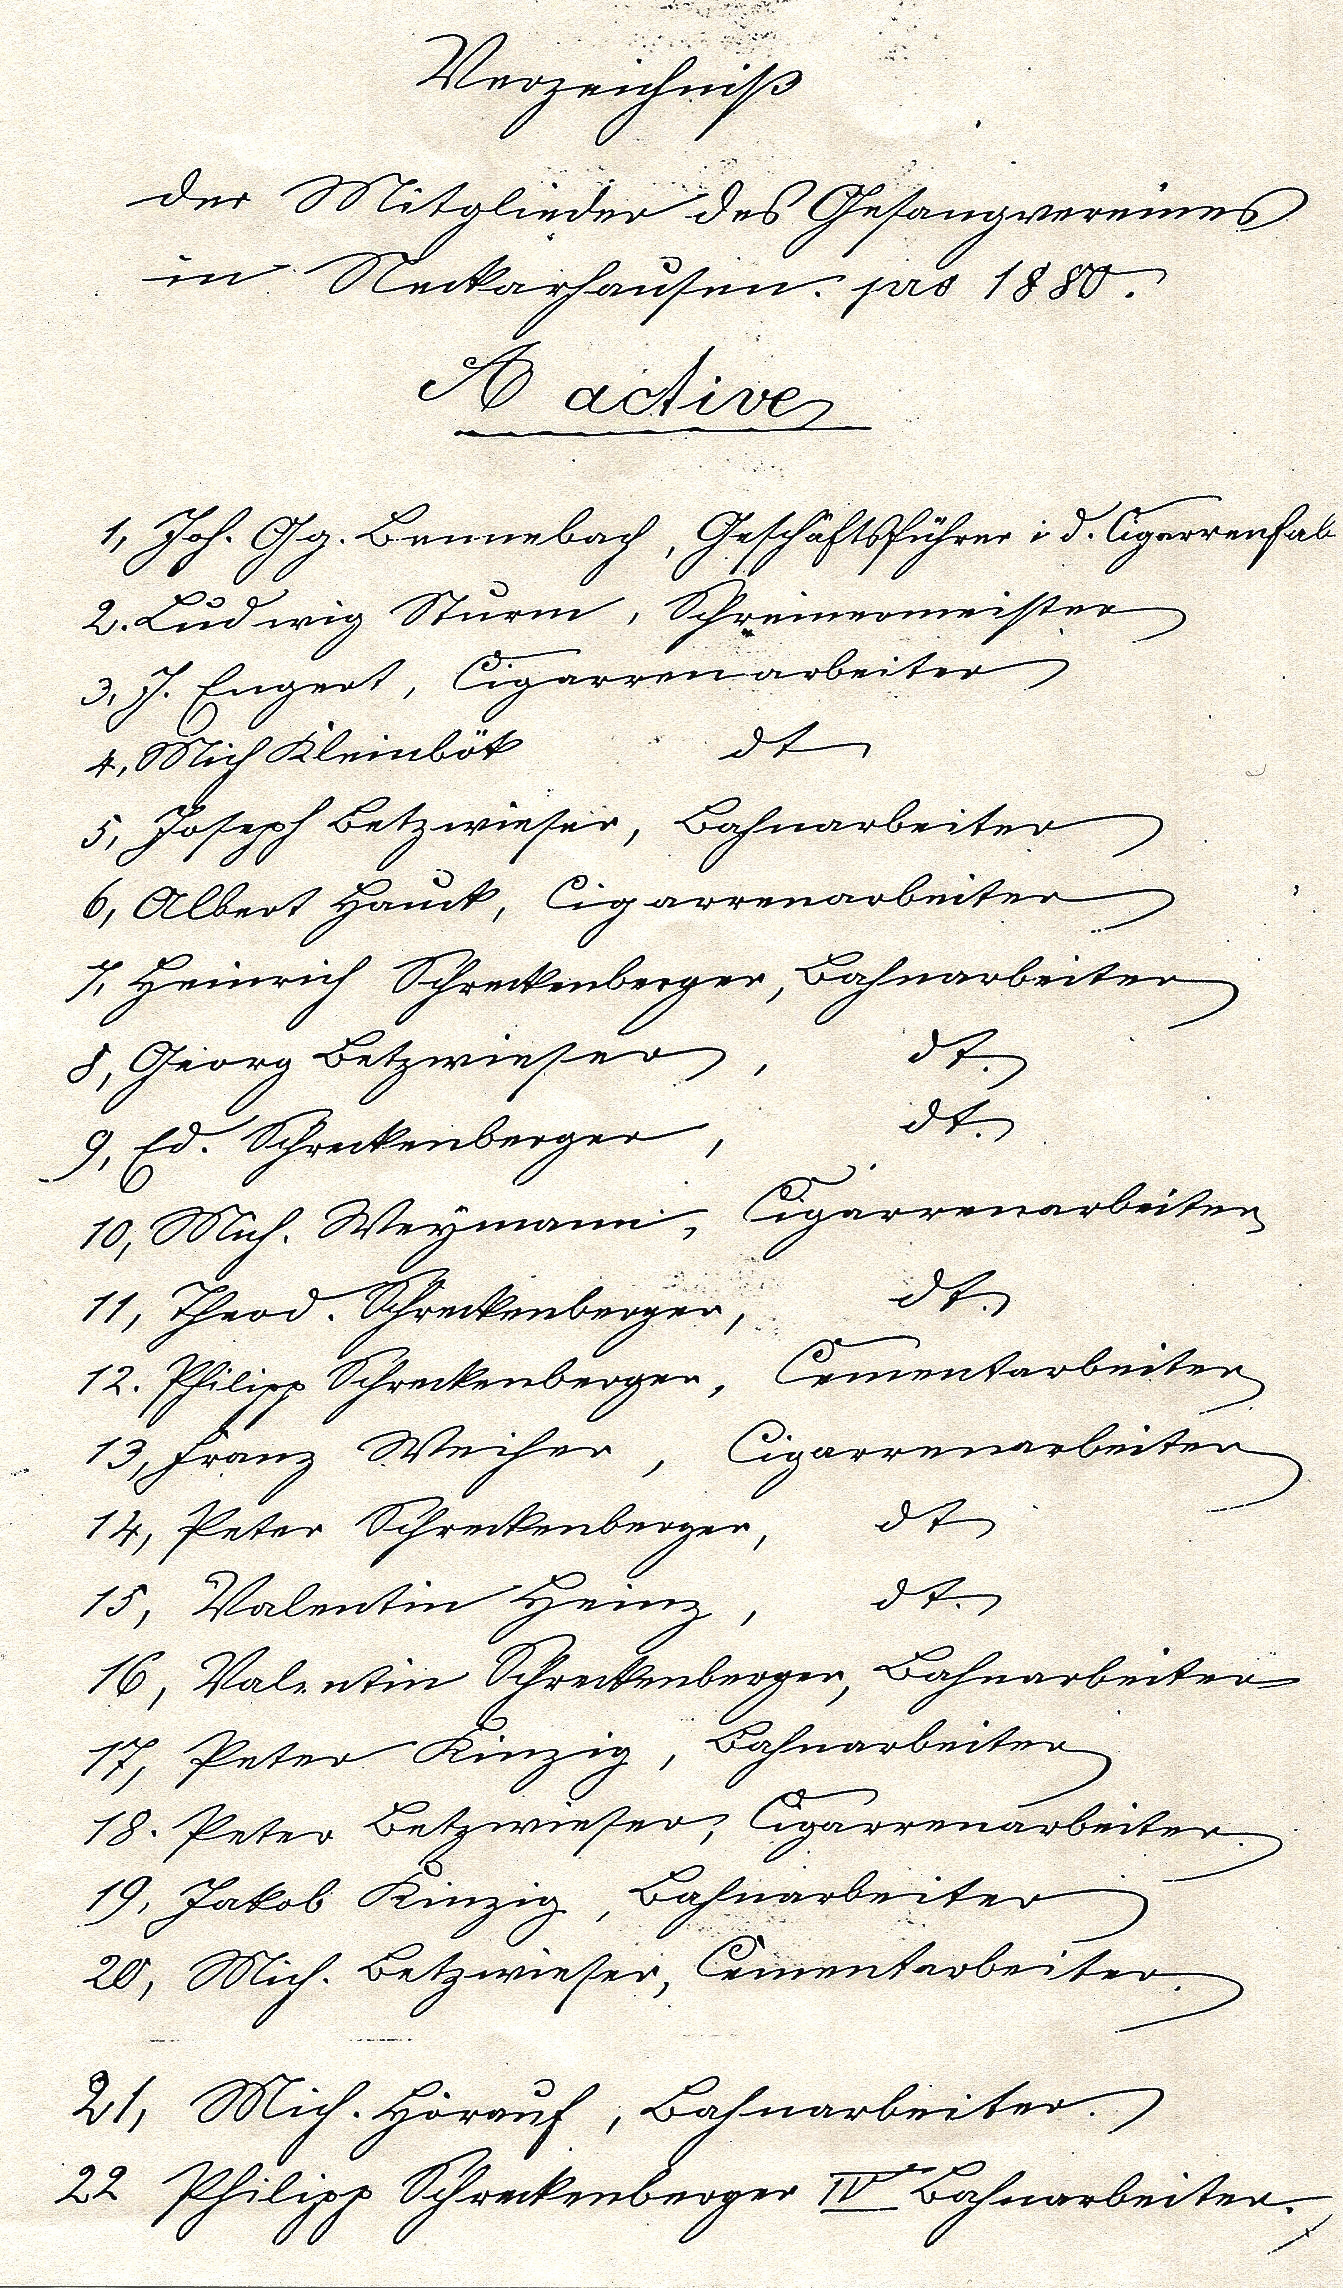 Verzeichniß
der Mitglieder des Gesangvereines
in Neckarhausen. pro 1880.
A active
1, Joh. Gg. Bennebach, Geschäftsführer i d. Cigarrenfab
2. Ludwig Sturm, Schreinermeister
3, J. Engert, Cigarrenarbeiter
4, Mich Kleinbök dt
5, Joseph Betzwieser, Bahnarbeiter
6, Albert Hauck, Cigarrenarbeiter
7, Heinrich Schreckenberger, Bahnarbeiter
8, Georg Betzwieser, dt.
9, Ed. Schreckenberger, dt.
10, Mich. Weymann, Cigarrenarbeiter
11, Theod. Schreckenberger, dt.
12. Philipp Schreckenberger, Cementarbeiter
13, Franz Weiher, Cigarrenarbeiter
14, Peter Schreckenberger, dt
15, Valentin Heinz, dt.
16, Valentin Schreckenberger, Bahnarbeiter
17, Peter Kinzig, Bahnarbeiter
18. Peter Betzwieser, Cigarrenarbeiter.
19, Jakob Kinzig, Bahnarbeiter
20, Mich. Betzwieser, Cementarbeiter.
21, Mich. Hörauf, Bahnarbeiter.
22 Philipp Schreckenberger IV Bahnarbeiter.